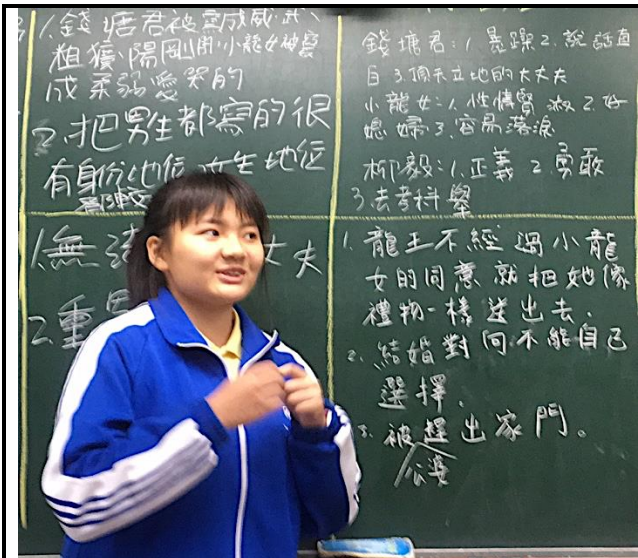 1.錢塘君被寫成威武、
粗獷、陽剛
小龍女被寫
成柔弱愛哭的
2.把男生都寫的很
有身份地位
女生地位
都較
錢塘君:1.暴躁2.說話直
白3.頂天立地的大丈夫
小龍女:1.性情賢淑2.好
媳婦3.容易落淚
柳毅:1.正義 2.勇敢
3.去考科舉
1.無
大夫
2.重
1. 龍王不經過小龍
女的同意就把她像
禮物一樣送出去.
2. 結婚對向不能自己
選擇.
3. 被趕出家門。
公婆